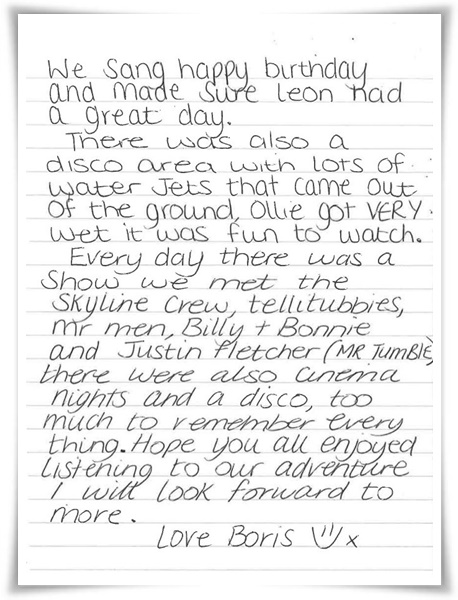 We Sang happy birthday
and made sure Leon had
a great day.
There was also a
disco area with lots of
water Jets that came out
of the ground, Ollie got VERY
wet it was fun to watch.
Every day there was a
Show we met the
Skyline Crew, tellitubbies,
mr men, Billy + Bonnie
and Justin Fletcher (MR TUMBLE)
there were also cinema
nights and a disco, too
much to remember every
thing. Hope you all enjoyed
listening to our adventure
I will look forward to
more.
Love Boris x